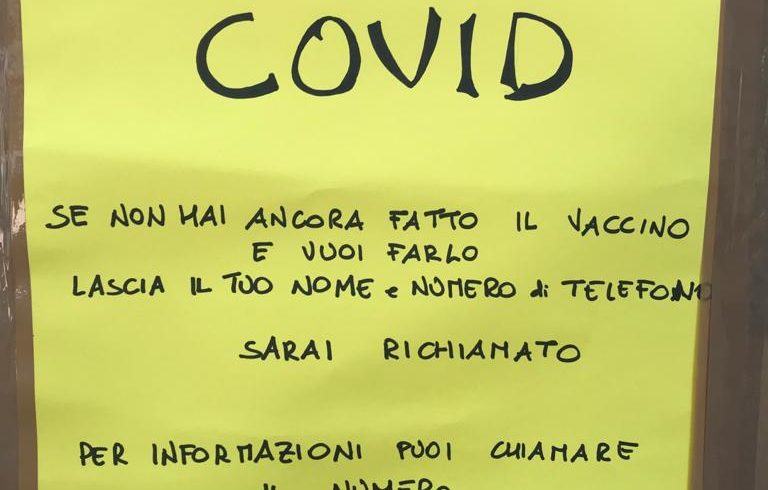 COVID
SE NON HAI ANCORA FATTO IL VACCINO
E VUOI FARLO
LASCIA IL TUO NOME e NUMERO di TELEFONO
SARAI RICHIAMATO
PER INFORMAZIONI PUOI CHIAMARE
IL NUMERO